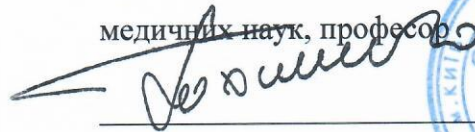 медичних наук, професор
м. КИЇ